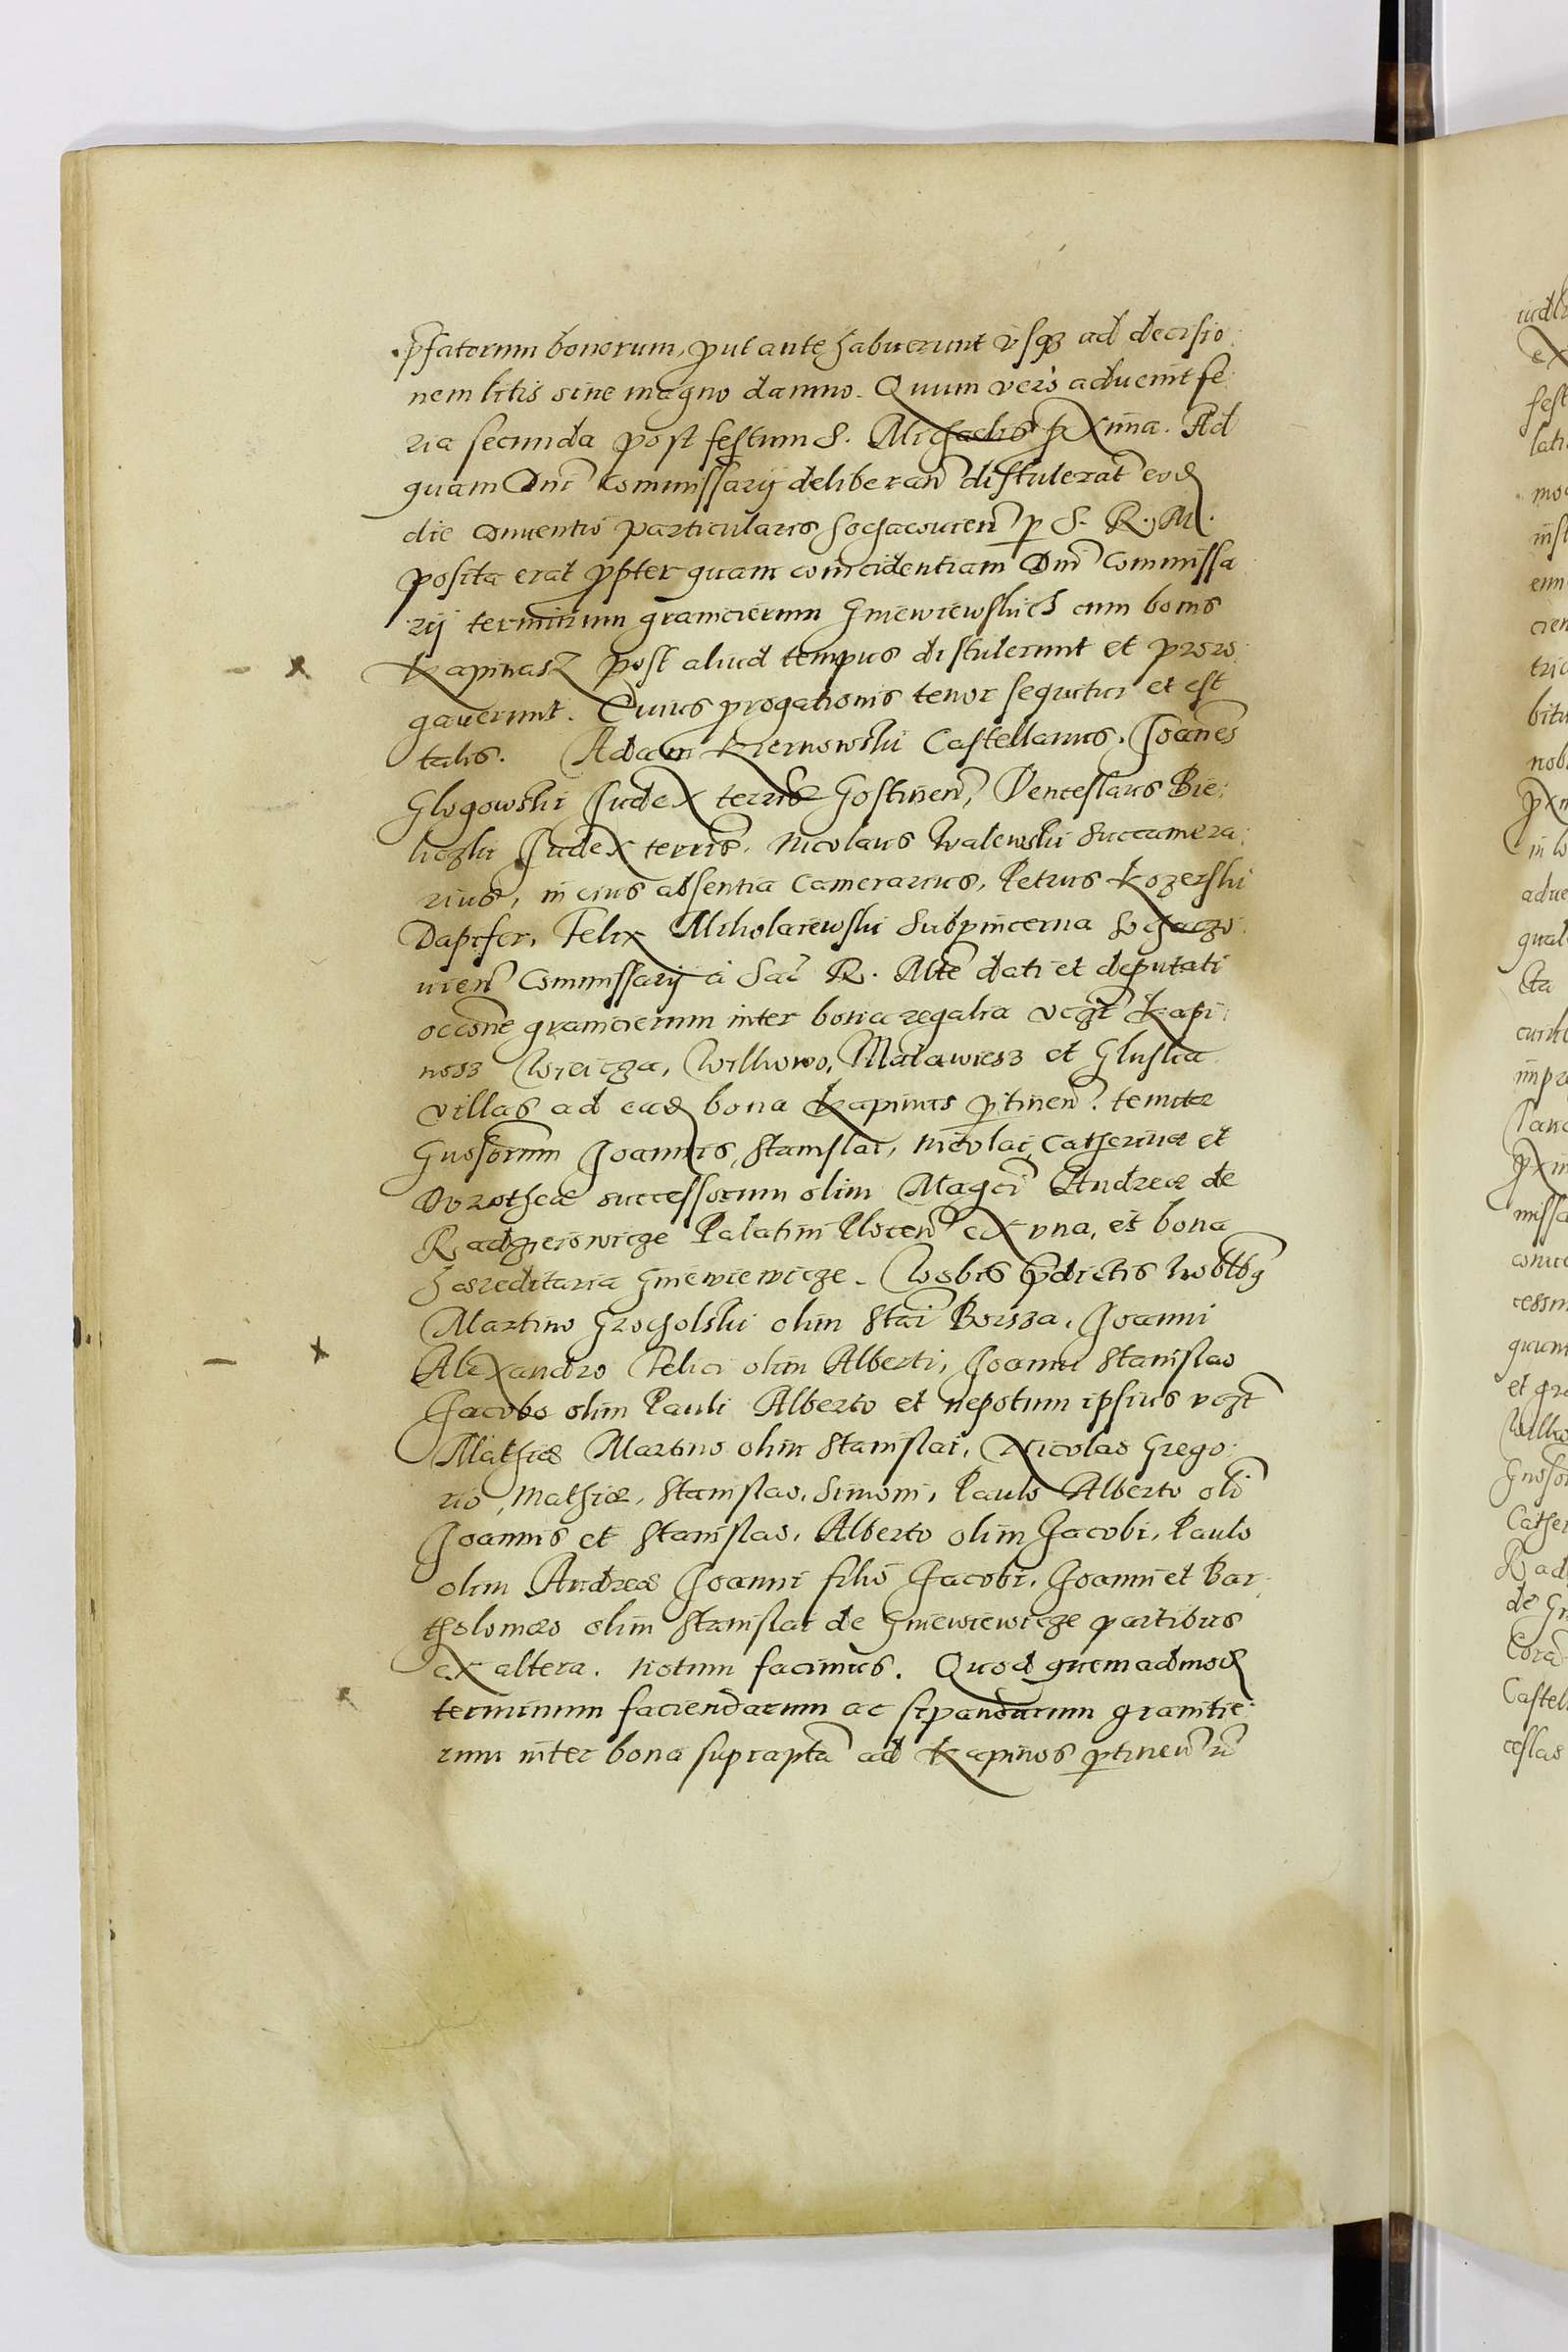 pfatorum bonorum, put ante habuerunt vsq3 ad decisio
nem litis sine magno damno. Quum vero aduenit fe
ria secunda post festum S. Michaelis pxima. Ad
quam Dni Commissarij deliberan distulerat eod
die conuentio particularis Sochacouien p S. R. M.
posita erat ppter quam coincidentiam Dni Commissa
rij terminum granicierum Gniewiewskich cum bonis
Kapinasz post aliud tempus distulerunt et proro
gauerunt. Cuius progationis tenor sequitur et est
talis. Adam Kiernowski Castellanus, Joanes
Glogowski Judex terris Gostinen, Venceslaus Bie
liczki Judex terris, Nicolaus Walewski Succamera
rius, in eius absentia Camerarius, Petrus Kozerski
Dapifer, Felix Mikolaiewski Subpincerna Sochaczo
uien Commissarij a Sac R. Mte dati et deputati
occone granicierum inter bona regalia vczt Kapi
nosz Wieicza, Wilkowo, Malawiesz et Gluska
villas ad ead bona Kapinos ptinen. tenutæ
Gnosorum Joannis, Stanislai, Nicolai, Catherinæ et
Dorotheæ successorum olim Magci Andreæ de
Radzieiowicze Palatini Plocen ex vna, et bona
hæreditaria Gniewiewicze. Vobis pdictis Nobtbg
Martino Grocholski olim Stai Borsza, Joanni
Alexandro Felici olim Alberti, Joanni Stanislao
Jacobo olim Pauli Alberto et nepotum ipsius vczt
Mathiæ Martino olim Stanislai, Nicolao Grego
rio, Mathiæ, Stanislao, Simoni, Paulo Alberto oli
Joannis et Stanislao, Alberto olim Jacobi, Paulo
olim Andreæ Joanni filio Jacobi, Joanni et Bar
tholomæo olim Stanislai de Gniewiewicze partibus
ex altera. Notum facimus. Quod quemadmod
terminum faciendarum ac sipandarum granitie
rum inter bona suprapta ad Kapinos ptinen